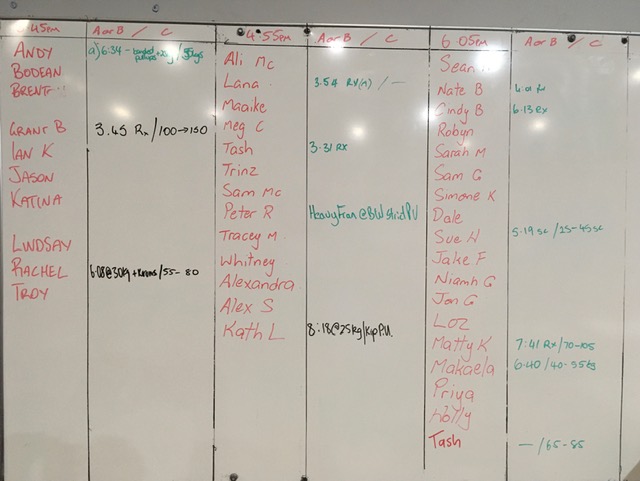 45am A or B / C
ANDY a) 6:34 - banded
BODEAN
BRENT
GRANT B 3.45 Rx / 100→150
IAN K
JASON
KATINA
LINDSAY
RACHEL 6:08@30kg + / 55-80
TROY
4.55pm A or B / C
Ali Mc
Lana 3.54 RX(M) / —
Maaike
Meg C
Tash 3.31 RX
Trinz
Sam Mc
Peter R Heavy Fran @BW strict PU
Tracey M
Whitney
Alexandra
Alex S
Kath L 8:18@25kg/Kip P.U.
6.05pm A or B / C
Sean
Nate B 4.01 Rx
Cindy B 6.13 Rx
Robyn
Sarah M
Sam G
Simone K
Dale
Sue H 5.19 sc / 25-45 sc
Jake F
Niamh G
Jon G
Loz
Matty K 7:41 Rx / 70-105
Makaela 6.40 / 40-55kg
Priya
Holly
Tash — / 65-85